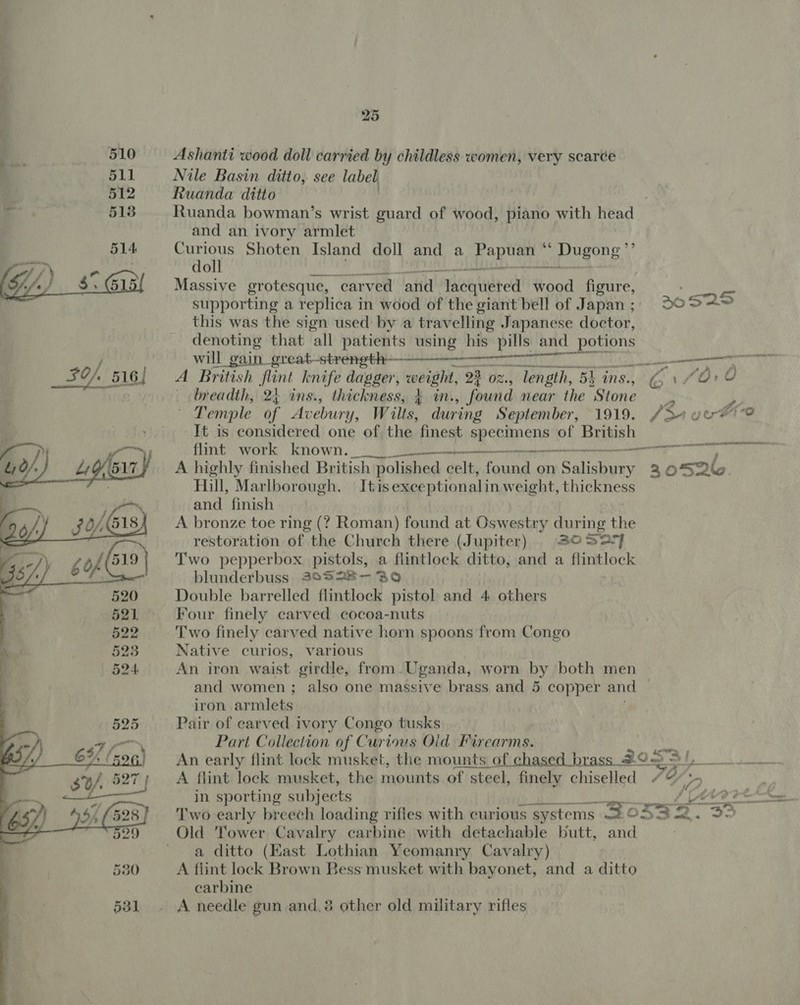 25
510 Ashanti wood doll carried by childless women, very scarce
511 Nile Basin ditto, see label
512 Ruanda ditto
513 Ruanda bowman's wrist guard of wood, piano with head
and an ivory armlet
514 Curious Shoten Island doll and a Papuan “ Dugong ”
doll
515 Massive grotesque, carved and lacquered wood figure,
supporting a replica in wood of the giant bell of Japan ; 30525
this was the sign used by a travelling Japanese doctor,
denoting that all patients using his pills and potions
will gain great strength
30/. 516 A British flint knife dagger, weight, 2¾ oz., length, 5½ ins.,
breadth, 2¼ ins., thickness, ¼ in., found near the Stone
Temple of Avebury, Wilts, during September, 1919.
It is considered one of the finest specimens of British
flint work known.
40/.) 40/ 517 A highly finished British polished celt, found on Salisbury 30526
Hill, Marlborough. It is exceptional in weight, thickness
and finish
20/.) 30/ 518 A bronze toe ring (? Roman) found at Oswestry during the
restoration of the Church there (Jupiter) 30527
35/.) 60/ 519 Two pepperbox pistols, a flintlock ditto, and a flintlock
blunderbuss 30528-30
520 Double barrelled flintlock pistol and 4 others
521 Four finely carved cocoa-nuts
522 Two finely carved native horn spoons from Congo
523 Native curios, various
524 An iron waist girdle, from Uganda, worn by both men
and women ; also one massive brass and 5 copper and
iron armlets
525 Pair of carved ivory Congo tusks
Part Collection of Curious Old Firearms.
526 An early flint lock musket, the mounts of chased brass 30531
527 A flint lock musket, the mounts of steel, finely chiselled
in sporting subjects
528 Two early breech loading rifles with curious systems 30532. 33
529 Old Tower Cavalry carbine with detachable butt, and
a ditto (East Lothian Yeomanry Cavalry)
530 A flint lock Brown Bess musket with bayonet, and a ditto
carbine
531 A needle gun and 3 other old military rifles